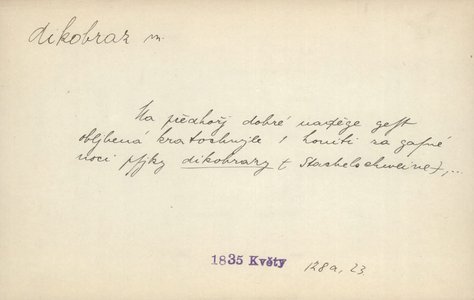 dikobraz m.
Na předhořj dobré naděge gest
obljbená kratochwjle / honiti za gasné
noci psyky dikobrazy (Stachelschweine),..
1835 Květy 128a, 23